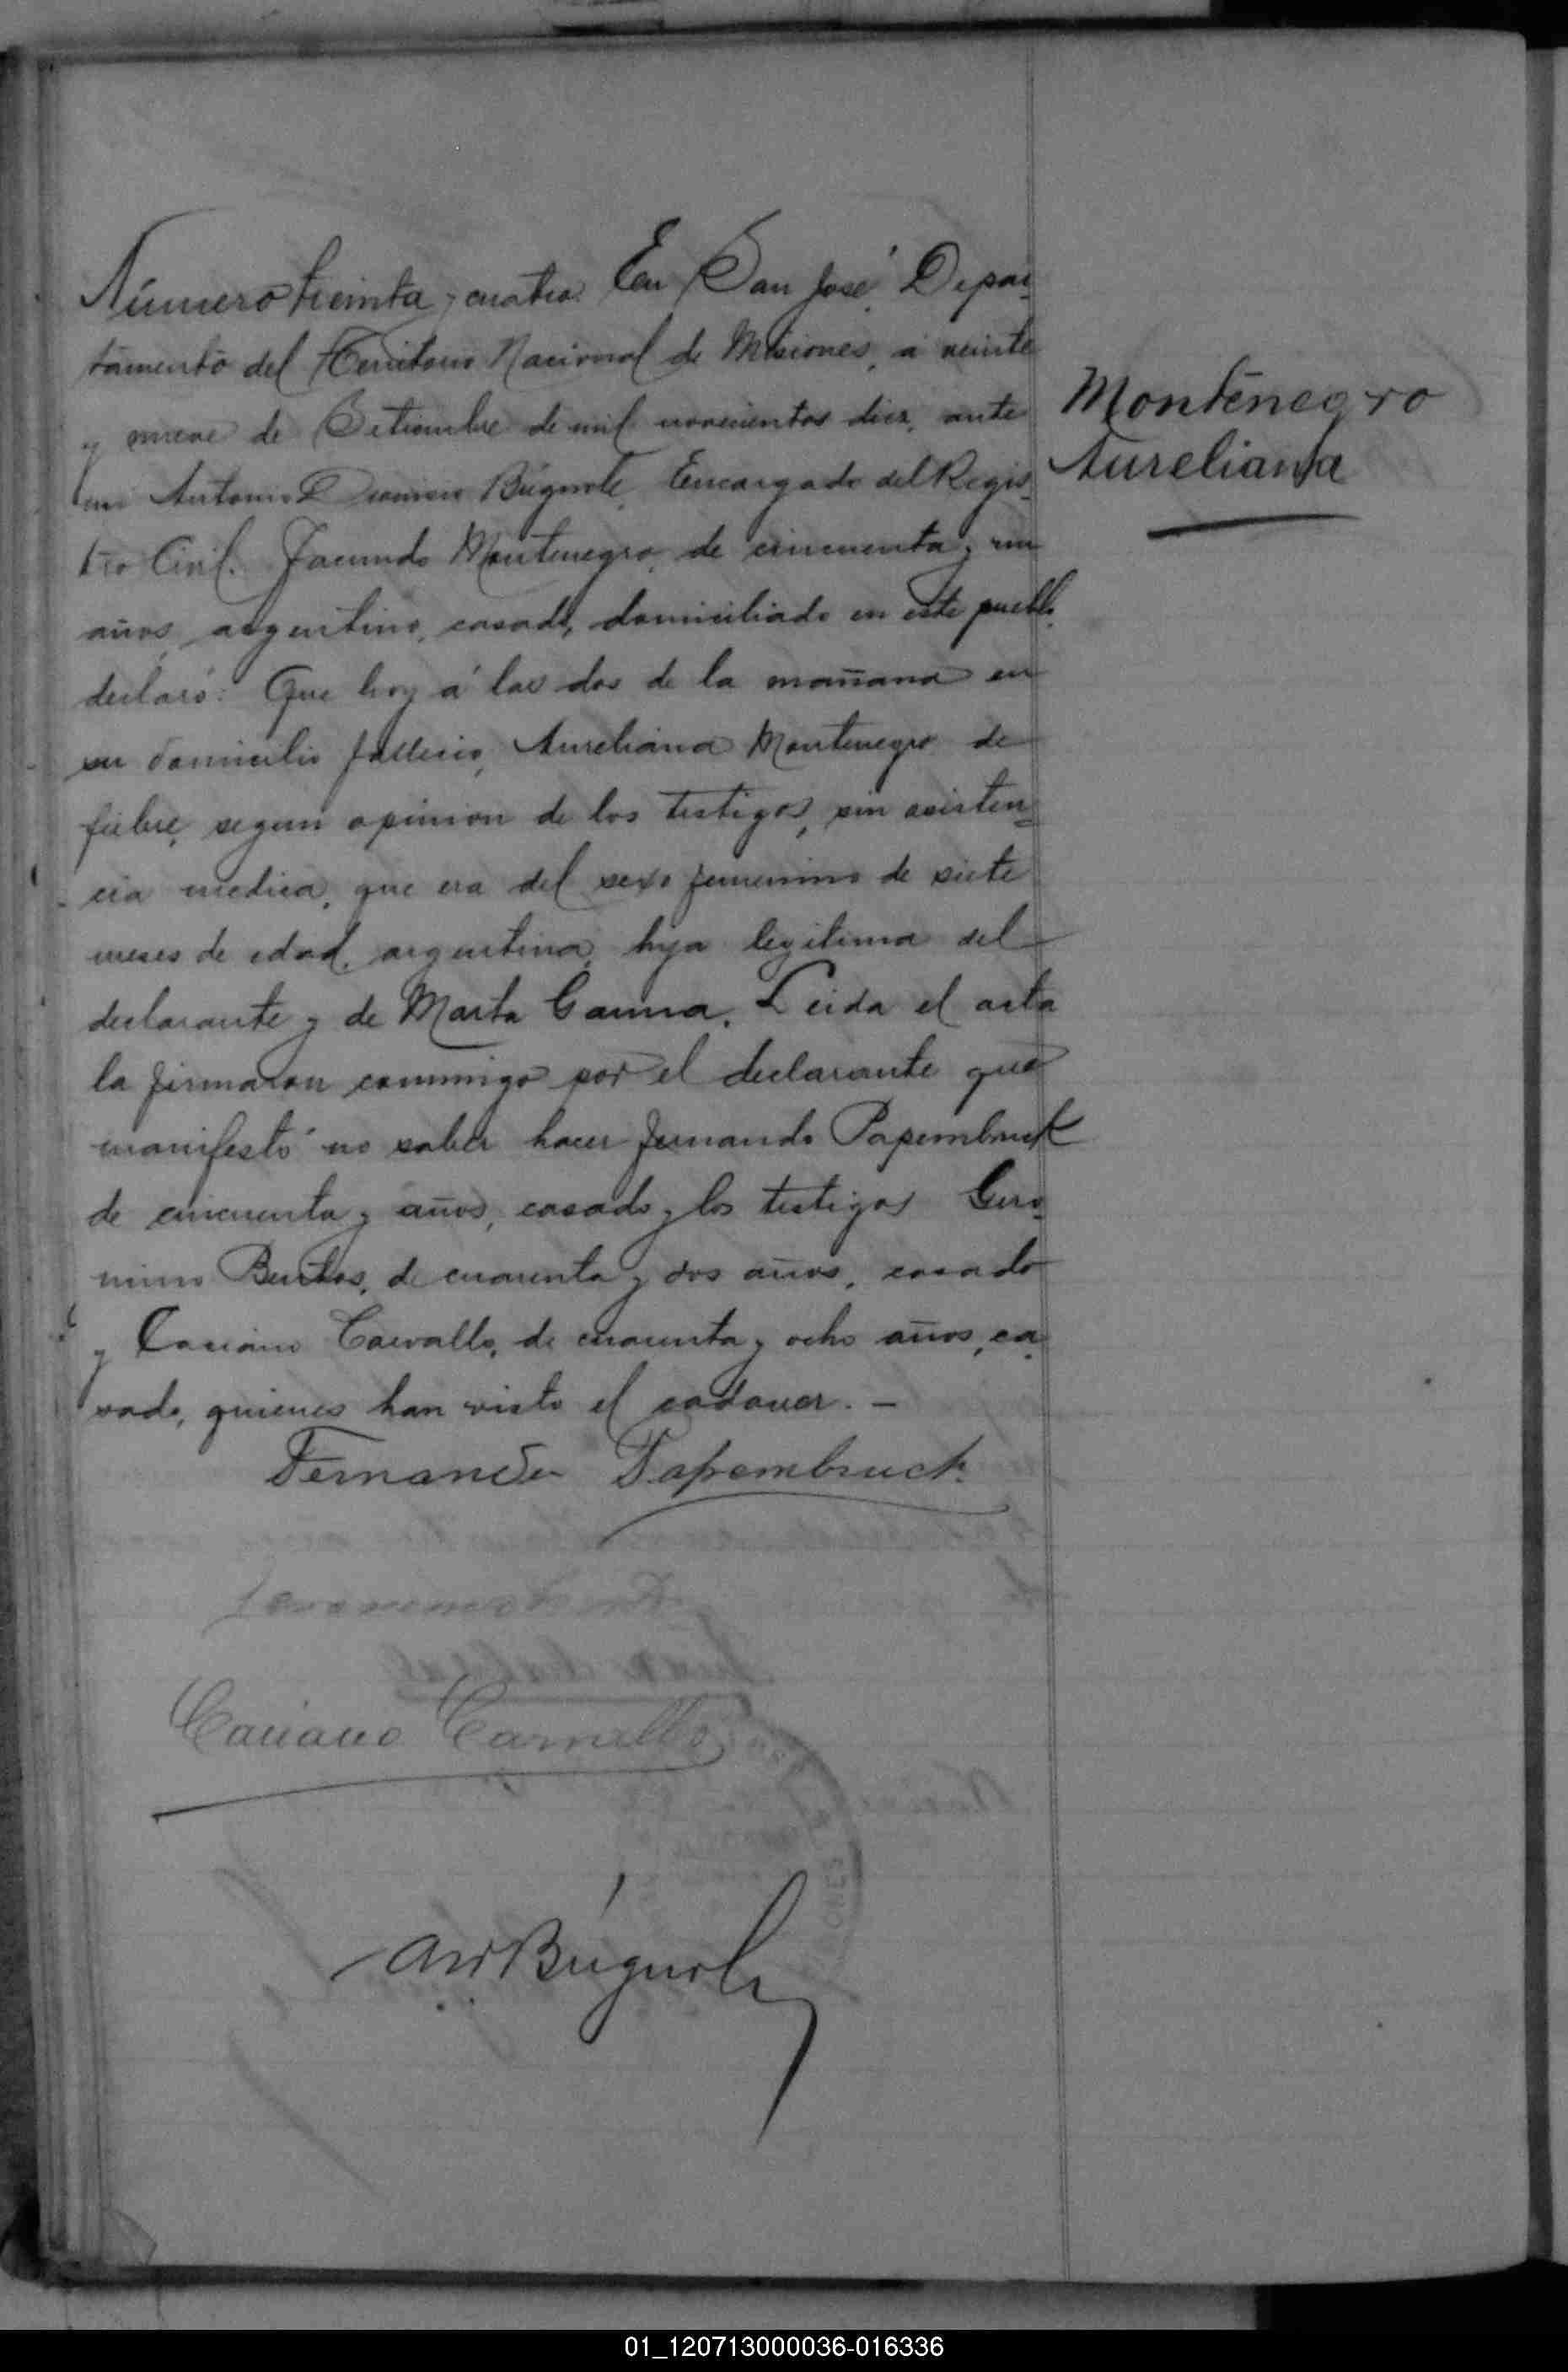 Número treinta y cuatro: En San José, Depar-
tamento del Territorio Nacional de Misiones, á veinte
y nueve de Setiembre de mil novecientos diez, ante
mi Antonio Bügnole, Encargado del Regis-
tro Civil. Facundo Montenegro, de cincuenta y un
años, argentino, casado, domiciliado en este pueblo,
declaró: Que hoy á las dos de la mañana en
su domicilio fallecio, Aureliana Montenegro de
fiebre, segun opinion de los testigos, sin asisten-
cia medica, que era del sexo femenino de siete
meses de edad, argentina, hija legitima del
declarante y de Marta Gauna. Leida el acta
la firmaron conmigo por el declarante que
manifestó no saber hacer Fernando Papembruck
de cincuenta y años, casado y los testigos Gero-
nimo de cuarenta y dos años, casado
y Casiano Carvallo, de cuarenta y ocho años, ca-
sado, quienes han visto el cadaver. —
Montenegro
Aureliana
Fernando Papembruck
Casiano Carvallo
Bügnole
01_120713000036-016336